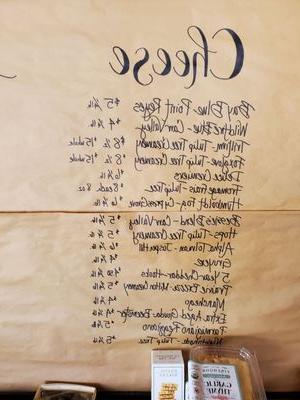 Cheese
Bay Blue - Point Reyes $5 1/4 lb
Wildfire Blue - Carr Valley $4 1/4 lb
Trillium - Tulip Tree Creamery $8 1/2 $15 whole
Foxglove - Tulip Tree Creamery $8 1/2 $15 whole
Delice Cremiers $6 1/4 lb
Fromage Frais Tulip Tree $8 each 8 oz
Humboldt Fog - Cypress Grove 1/4 lb
Blend - Carr Valley $5 1/4 lb
Hops - Tulip Tree Creamery $5 1/4 lb
Alpha Tolman - Jasper Hill 1/4 lb
Gruyere 1/4 lb
5 Year Cheddar - Hooks 1/4 lb
Prairie Breeze - Milton Creamery 1/4 lb
Manchego 1/4 lb
Extra Aged Gouda - Beemster 1/4 lb
Parmigiano Reggiano $5 1/4 lb
Nightshade - Tulip Tree $5 1/4 lb
GARLIC
THYME